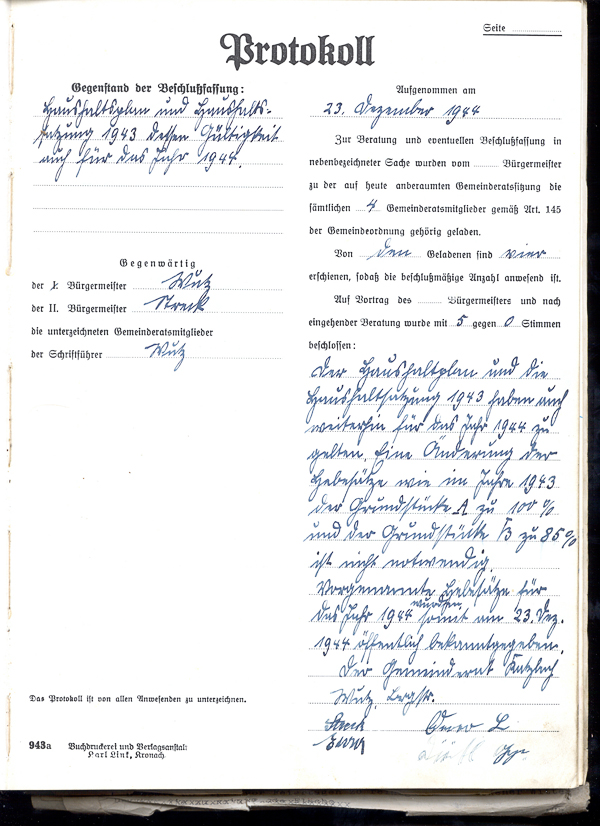 Seite
Protokoll
Gegenstand der Beschlußfassung:
Haushaltsplan und Haushalts-
satzung 1943 dessen Gültigkeit
auch für das Jahr 1944.
Gegenwärtig
der I. Bürgermeister Wutz
der II. Bürgermeister Streck
die unterzeichneten Gemeinderatsmitglieder
der Schriftführer Wutz
Das Protokoll ist von allen Anwesenden zu unterzeichnen.
943a Buchdruckerei und Verlagsanstalt
Karl Link, Kronach.
Aufgenommen am
23. Dezember 1944
Zur Beratung und eventuellen Beschlußfassung in
nebenbezeichneter Sache wurden vom Bürgermeister
zu der auf heute anberaumten Gemeinderatssitzung die
sämtlichen 4 Gemeinderatsmitglieder gemäß Art. 145
der Gemeindeordnung gehörig geladen.
Von den Geladenen sind vier
erschienen, sodaß die beschlußmäßige Anzahl anwesend ist.
Auf Vortrag des Bürgermeisters und nach
eingehender Beratung wurde mit 5 gegen 0 Stimmen
beschlossen:
Der Haushaltplan und die
Haushaltsatzung 1943 haben auch
weiterhin für das Jahr 1944 zu
gelten. Eine Änderung der
Hebesätze wie im Jahre 1943
der Grundstücke A zu 100 %
und der Grundstücke B zu 85%
ist nicht notwendig.
Vorgenannte Hebesätze für
das Jahr 1944 wurden somit am 23. Dez.
1944 öffentlich bekanntgegeben.
Der Gemeinderat Katzbach
Wutz, Brgstr.